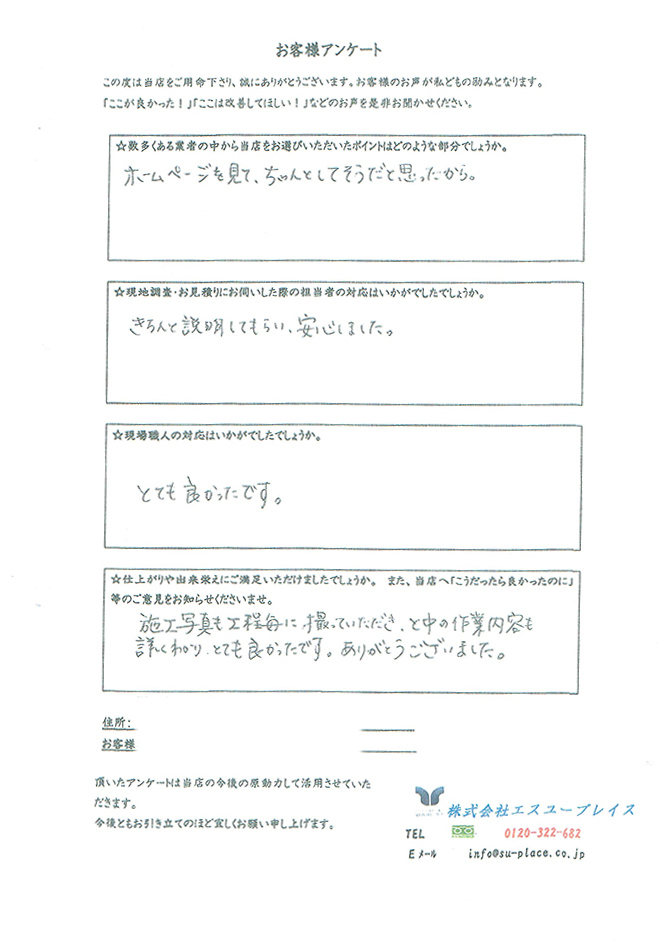 お客様アンケート
この度は当店をご用命下さり、誠にありがとうございます。お客様のお声が私どもの励みとなります。
「ここが良かった！」「ここは改善してほしい！」などのお声を是非お聞かせください。
☆数多くある業者の中から当店をお選びいただいたポイントはどのような部分でしょうか。
ホームページを見て、ちゃんとしてそうだと思ったから。
☆現地調査・お見積りにお伺いした際の担当者の対応はいかがでしたでしょうか。
きちんと説明してもらい、安心しました。
☆現場職人の対応はいかがでしたでしょうか。
とても良かったです。
☆仕上がりや出来栄えにご満足いただけましたでしょうか。 また、当店へ「こうだったら良かったのに」
等のご意見をお知らせくださいませ。
施工写真も工程毎に撮っていただき、と中の作業内容も
詳しくわかり、とても良かったです。ありがとうございました。
住所：
お客様
頂いたアンケートは当店の今後の原動力して活用させていた
だきます。
今後ともお引き立てのほど宜しくお願い申し上げます。
株式会社エスユープレイス
TEL 0120-322-682
Eメール info@su-place.co.jp